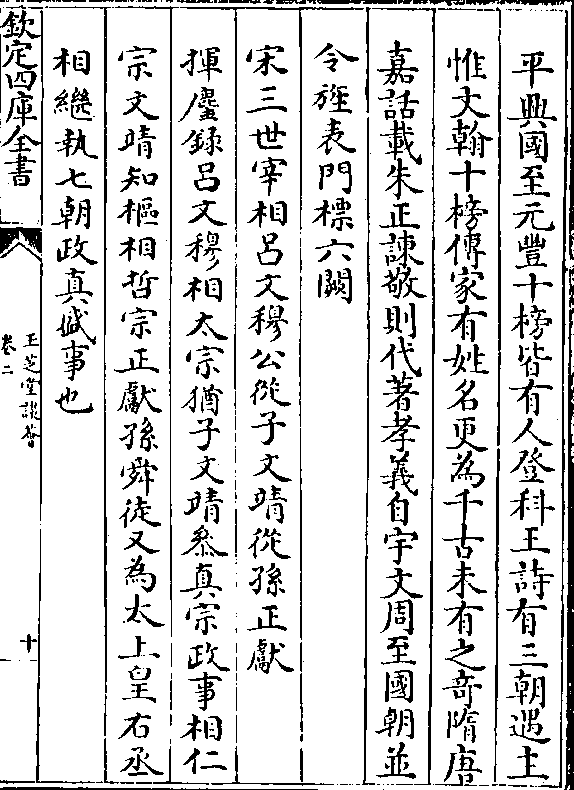 平興國至元豐十榜皆有人登科王詩有三朝遇主
惟文翰十榜傳家有姓名更為千古未有之竒隋唐
嘉話載朱正諫敬則代著孝義自宇文周至國朝並
令旌表門標六闕
宋三世宰相呂文穆公從子文靖從孫正獻
揮麈錄呂文穆相太宗猶子文靖叅真宗政事相仁
宗文靖知樞相哲宗正獻孫舜徒又為太上皇右丞
相繼執七朝政真盛事也
欽定四庫全書
玉芝堂談薈
卷二
十